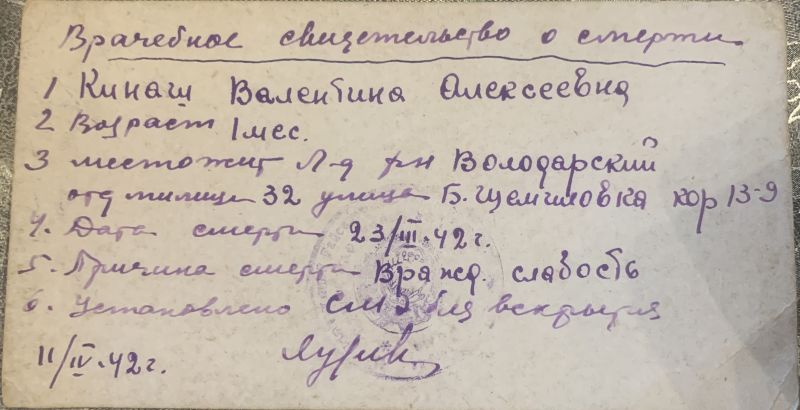 Врачебное свидетельство о смерти
1 Кинаш Валентина Алексеевна
2 Возраст 1 мес.
3 местожит Л-д рн Володарский
отд милиции 32 улица Б. Щемиловка кор 13-9
4. Дата смерти 23/III.42 г.
5. Причина смерти Вражд. слабость
6. Установлено СМЭ без вскрытия
11/IV.42 г.